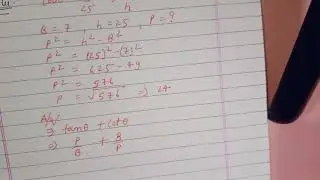 25 h
B = 7 , h = 25 , P = ?
P² = h² - B²
P² = (25)² - (7)²
P² = 625 - 49
P² = 576
P = √576 ⇒ 24
A/q,
⇒ tanθ + cotθ
⇒ P/B + B/P